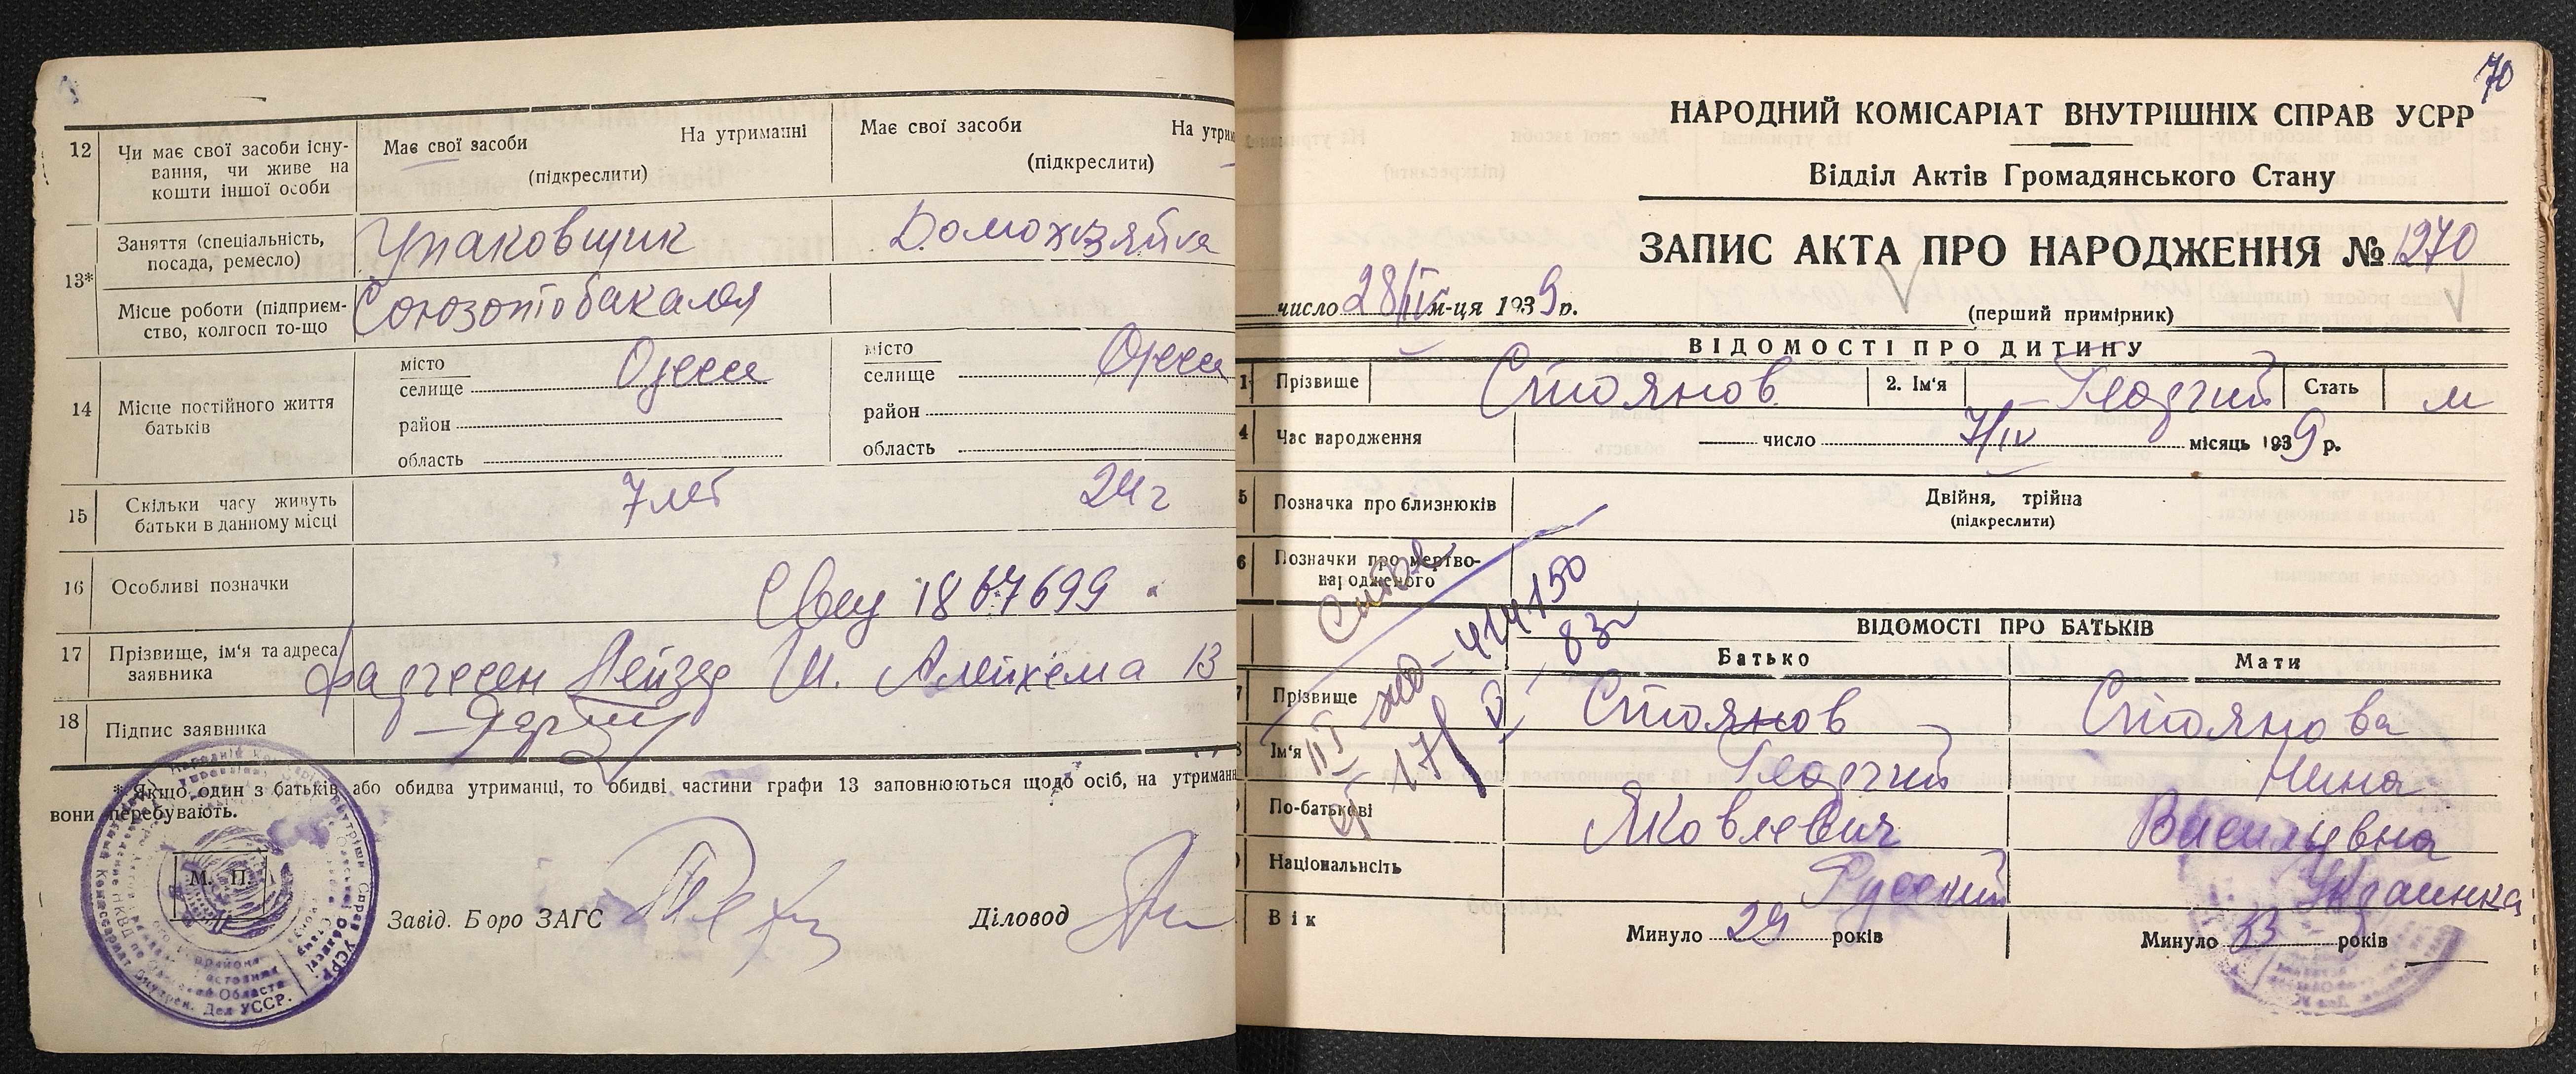 12
Чи має свої засоби існу-
вання, чи живе на
кошти іншої особи
Має свої засоби
На утриманні
(підкреслити)
Має свої засоби
На утрим
(підкреслити)
13*
Заняття (спеціальність,
посада, ремесло)
Упаковщик
Домохозяйка
Місце роботи (підприєм-
ство, колгосп то-що
Союзоптобакалея
14
Місце постійного життя
батьків
місто
селище
Одесса
район
область
місто
селище
Одесса
район
область
15
Скільки часу живуть
батьки в данному місці
7 лет
24 г
16
Особливі позначки
1867699
17
Прізвище, ім'я та адреса
заявника
Лейзер Ш. Алейхема 13
18
Підпис заявника
* Якщо один з батьків або обидва утриманці, то обидві частини графи 13 заповнюються щодо осіб, на утриманн
вони перебувають.
М. П.
Завід. Боро ЗАГС
Діловод
70
НАРОДНИЙ КОМІСАРІАТ ВНУТРІШНІХ СПРАВ УСРР
Відділ Актів Громадянського Стану
ЗАПИС АКТА ПРО НАРОДЖЕННЯ № 1270
число 28/IV м-ця 1939 р.
(перший примірник)
ВІДОМОСТІ ПРО ДИТИНУ
1 Прізвище Стоянов 2. Ім'я Георгий Стать м
4 Час народження число 7/IV місяць 1939 р.
5 Позначка про близнюків
Двійня, трійня
(підкреслити)
6 Позначки про мертво-
народженого
ВІДОМОСТІ ПРО БАТЬКІВ
Батько Мати
7 Прізвище Стоянов Стоянова
8 Ім'я Георгий Нина
По-батькові Яковлевич Васильевна
Національність Русский Украинка
Вік Минуло 29 років Минуло 23 років